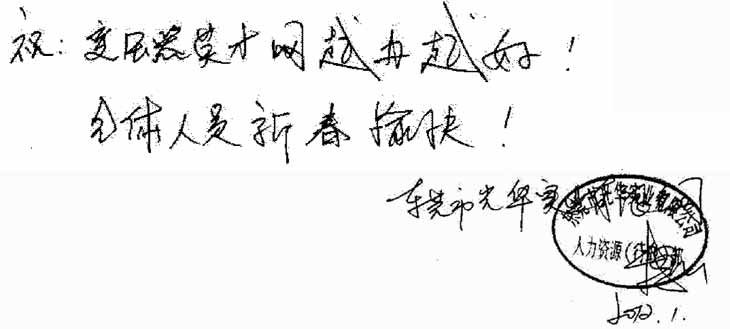 祝：变压器英才网越办越好！
全体人员新春愉快！
东莞市光华实
人力资源
2012.1.